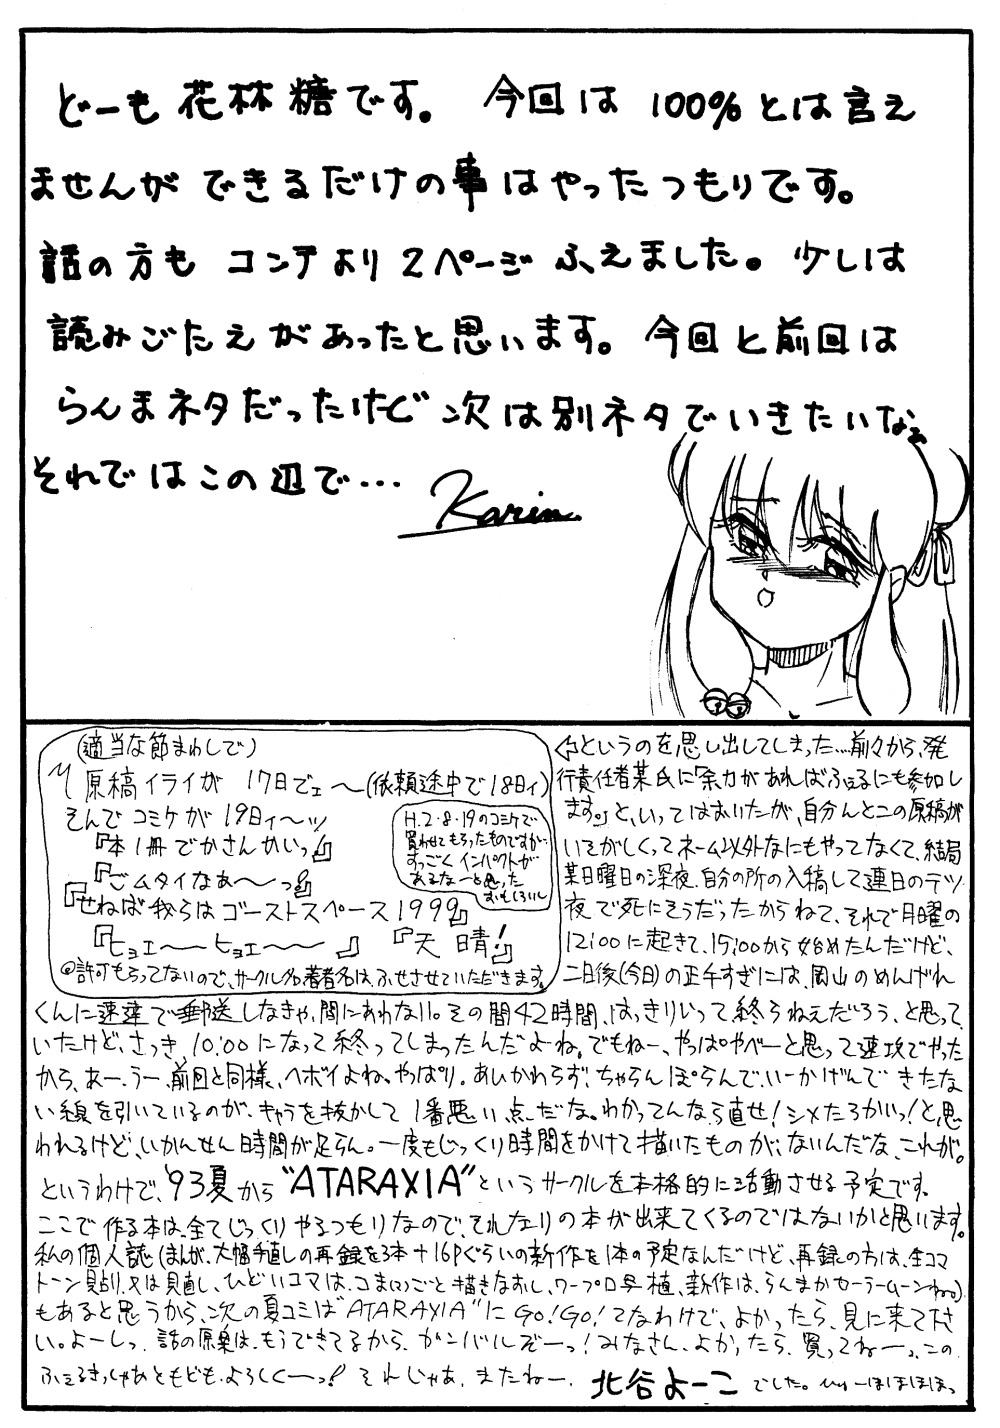 どーも花林糖です。 今回は 100%とは言え
ませんができるだけの事はやったつもりです。
話の方も コンテより2ページふえました。少しは
読みごたえがあったと思います。今回と前回は
らんまネタだったけど次は別ネタでいきたいなぁ
それではこの辺で…
Karin
(適当な節まわしで)
原稿イライが 17日でェ〜(依頼途中で18日ィ)
そんで コミケが 19日ィ〜ッ
『本1冊でかさんかいっ』
『ごムタイなあ〜っ!』
『せねば我らはゴーストスペース1999』
『ヒョエ〜〜ヒョエ〜〜 』 『天晴!』
H.2・8・19のコミケで
買わせてもらったものですが…
すっごくインパクトが
あるなーと思った
おもしろいし
◎許可もらってないので、サークル名、著者名は、ふせさせていただきます。
⇦というのを思い出してしまった…前々から、発
行責任者某氏に「余力があればふぇるにも参加し
ます。」と、いってはおいたが、自分んとこの原稿が
いそがしくってネーム以外なにもやってなくて、結局
某日曜日の深夜、自分の所の入稿して連日のテツ
夜で死にそうだったからねて、それで月曜の
12:00に起きて、15:00から始めたんだけど、
二日後(今日)の正午すぎには、岡山のめんげれ
くんに速達で郵送しなきゃ、間にあわない。その間42時間、はっきりいって終らねえだろう、と思って
いたけど、さっき、10:00になって終ってしまったんだよね。でもねー、やっぱやべーと思って速攻でやった
から、あー、うー、前回と同様、ヘボイよね。やっぱり。あいかわらず、ちゃらんぽらんで、いーかげんできたな
い線を引いているのが、キャラを抜かして1番悪い点だな。わかってんなら直せ!シメたろかいっ!と、思
われるけど、いかんせん時間が足らん。一度もじっくり時間をかけて描いたものが、ないんだな、これが。
というわけで、'93夏から"ATARAXIA"というサークルを本格的に活動させる予定です。
ここで作る本は、全てじっくりやるつもりなので、それなりの本が出来てくるのではないかと思います。
私の個人誌(まんが、大幅手直しの再録を3本+16Pぐらいの新作を1本の予定なんだけど、再録の方は、全コマ
トーン見貼り、又は見直し、ひどいコマは、コマごと描きなおし、ワープロ写植、新作は、らんまかセーラームーンねっ)
もあると思うから、次の夏コミは"ATARAXIA"にGO!GO!てなわけで、よかったら、見に来て下さ
い。よーしっ、話の原案は、もうできてるから、ガンバルぞーっ!みなさん、よかったら、買ってねーっ、この
ふぇるきっしゅあともども、よろしくーっ! それじゃあ、またねー、 北谷よーこ でした。